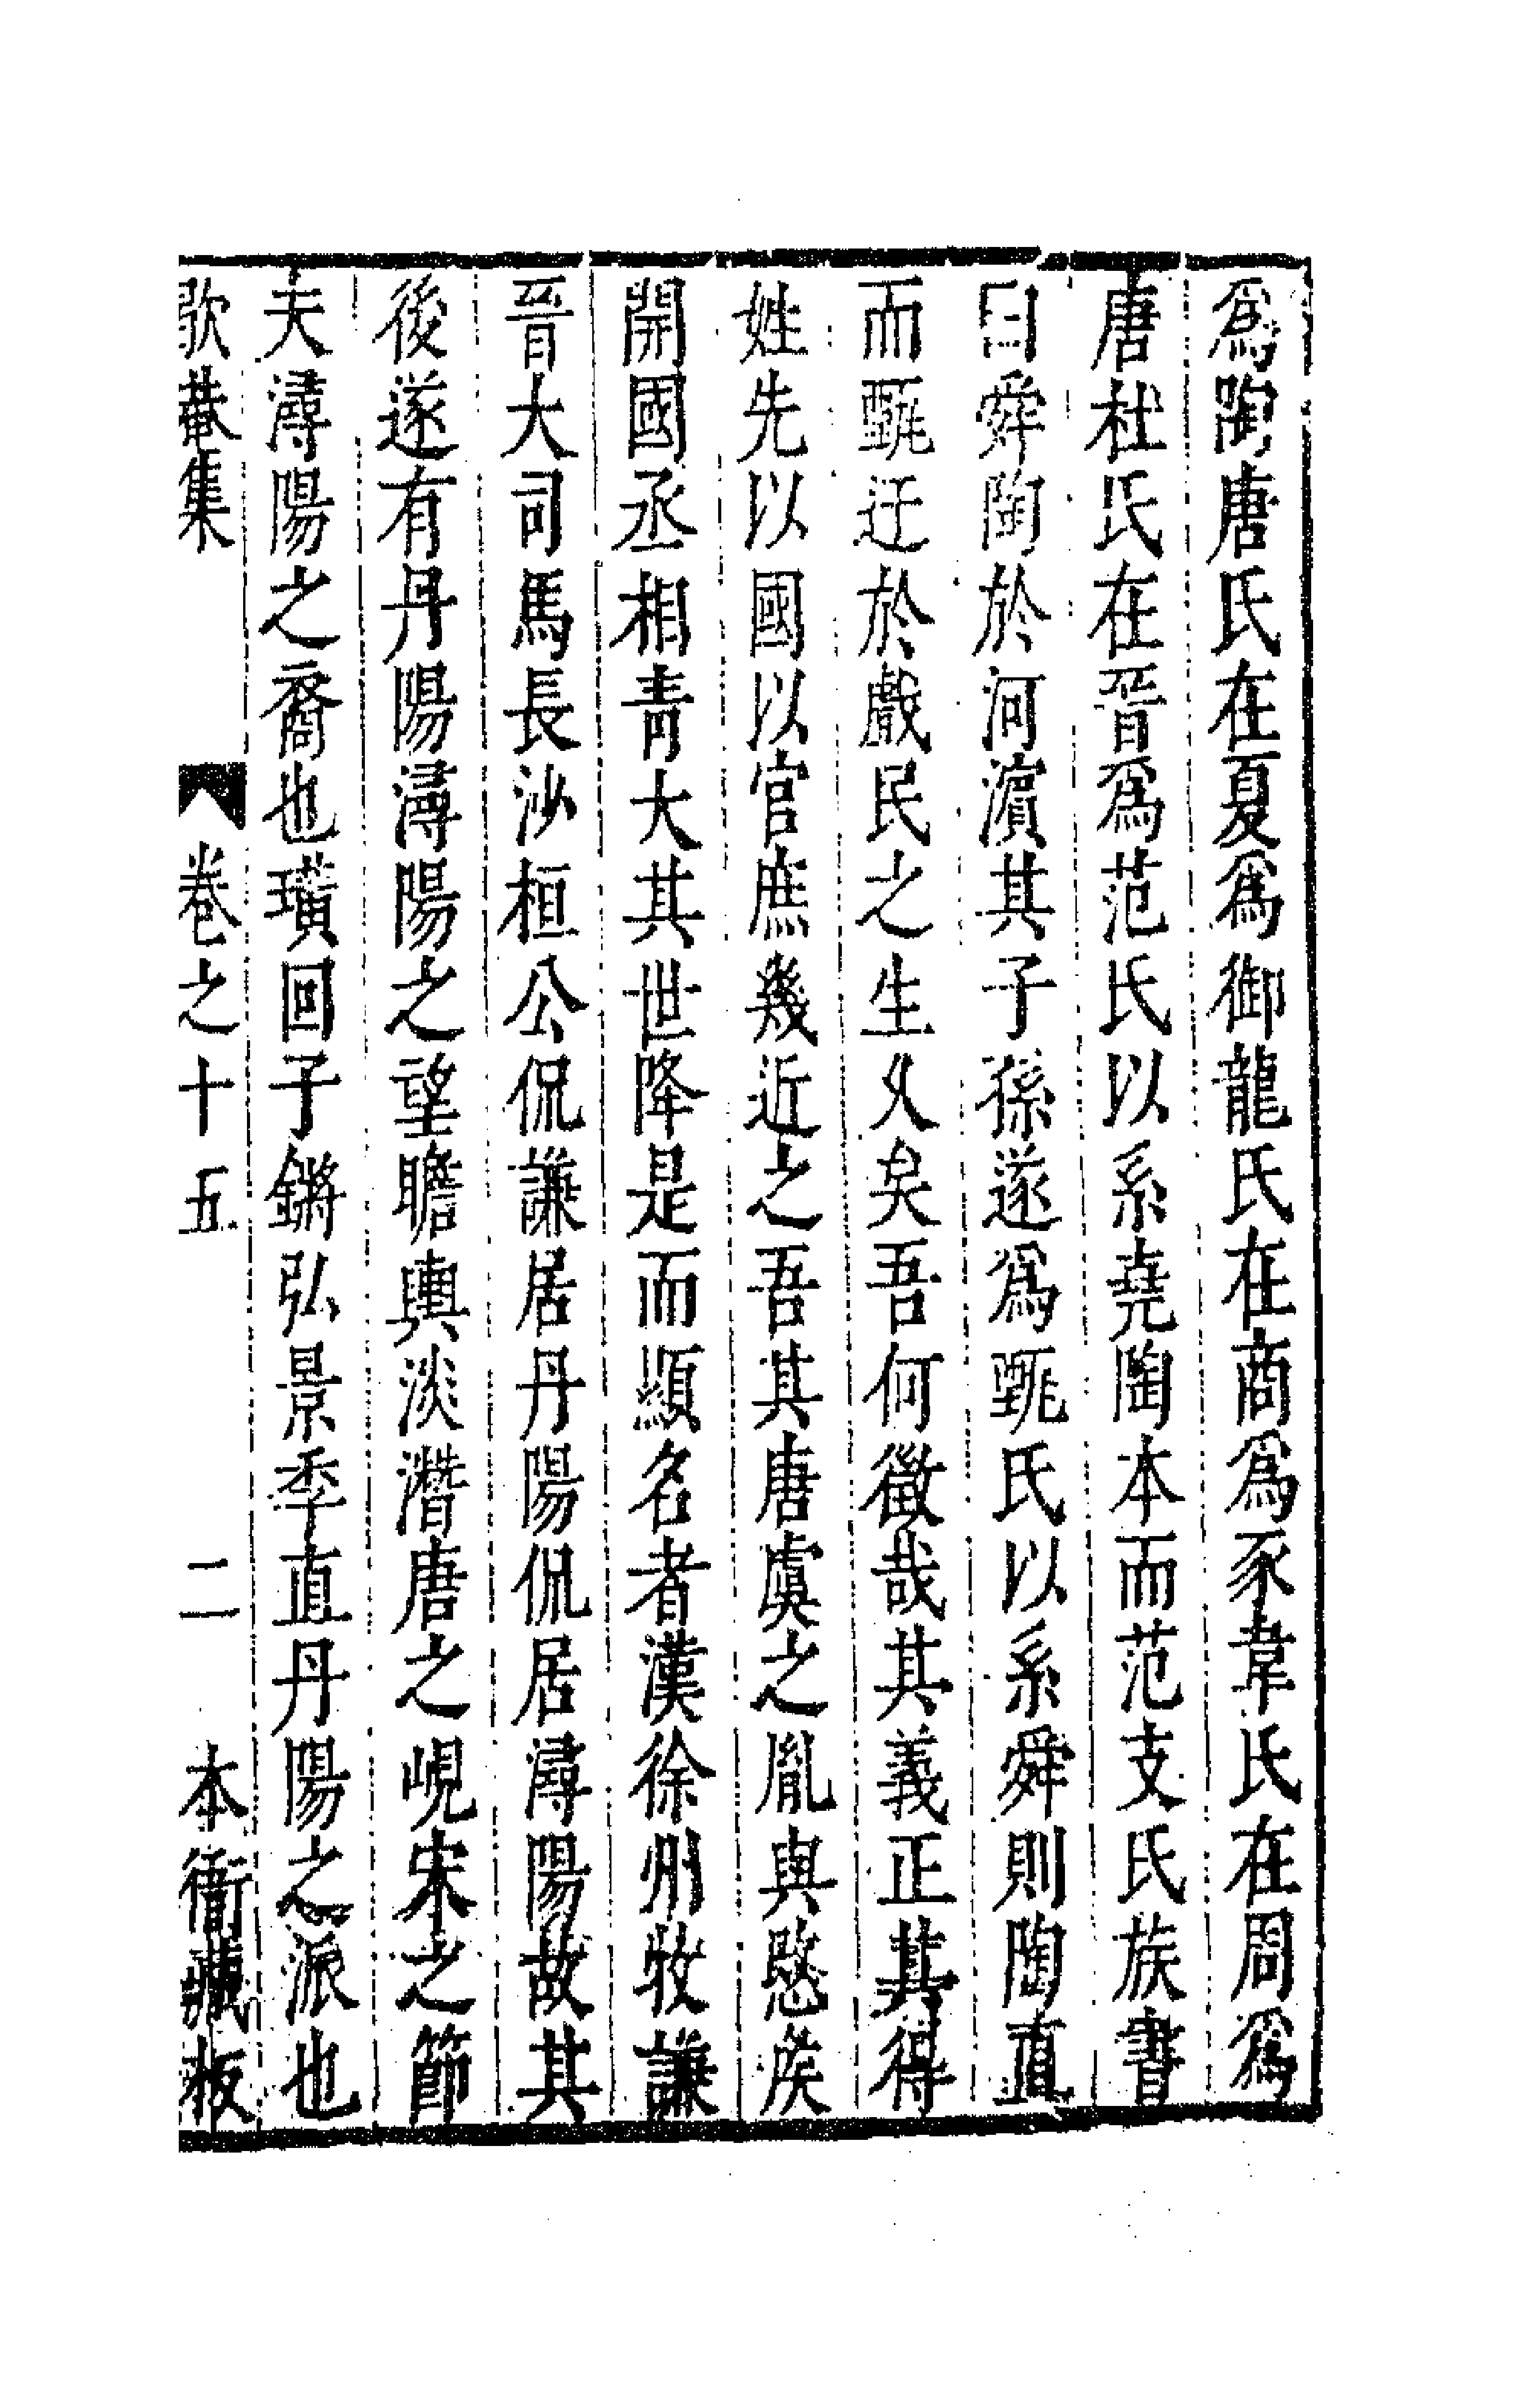 爲陶唐氏在夏爲御龍氏在商爲豕韋氏在周爲
唐杜氏在晉爲范氏以系堯陶本而范支氏族書
曰舜陶於河濵其子孫遂爲甄氏以系舜則陶直
而甄迂於戲民之生乆矣吾何徵哉其義正其得
姓先以國以官庶幾近之吾其唐虞之胤與愍侯
開國丞相青大其世降是而顯名者漢徐州牧謙
晉大司馬長沙桓公侃謙居丹陽侃居潯陽故其
後遂有丹陽潯陽之望瞻輿淡潛唐之峴宋之節
夫潯陽之裔也璜回子鏘弘景季直丹陽之派也
歇菴集 卷之十五 二 本衙藏板